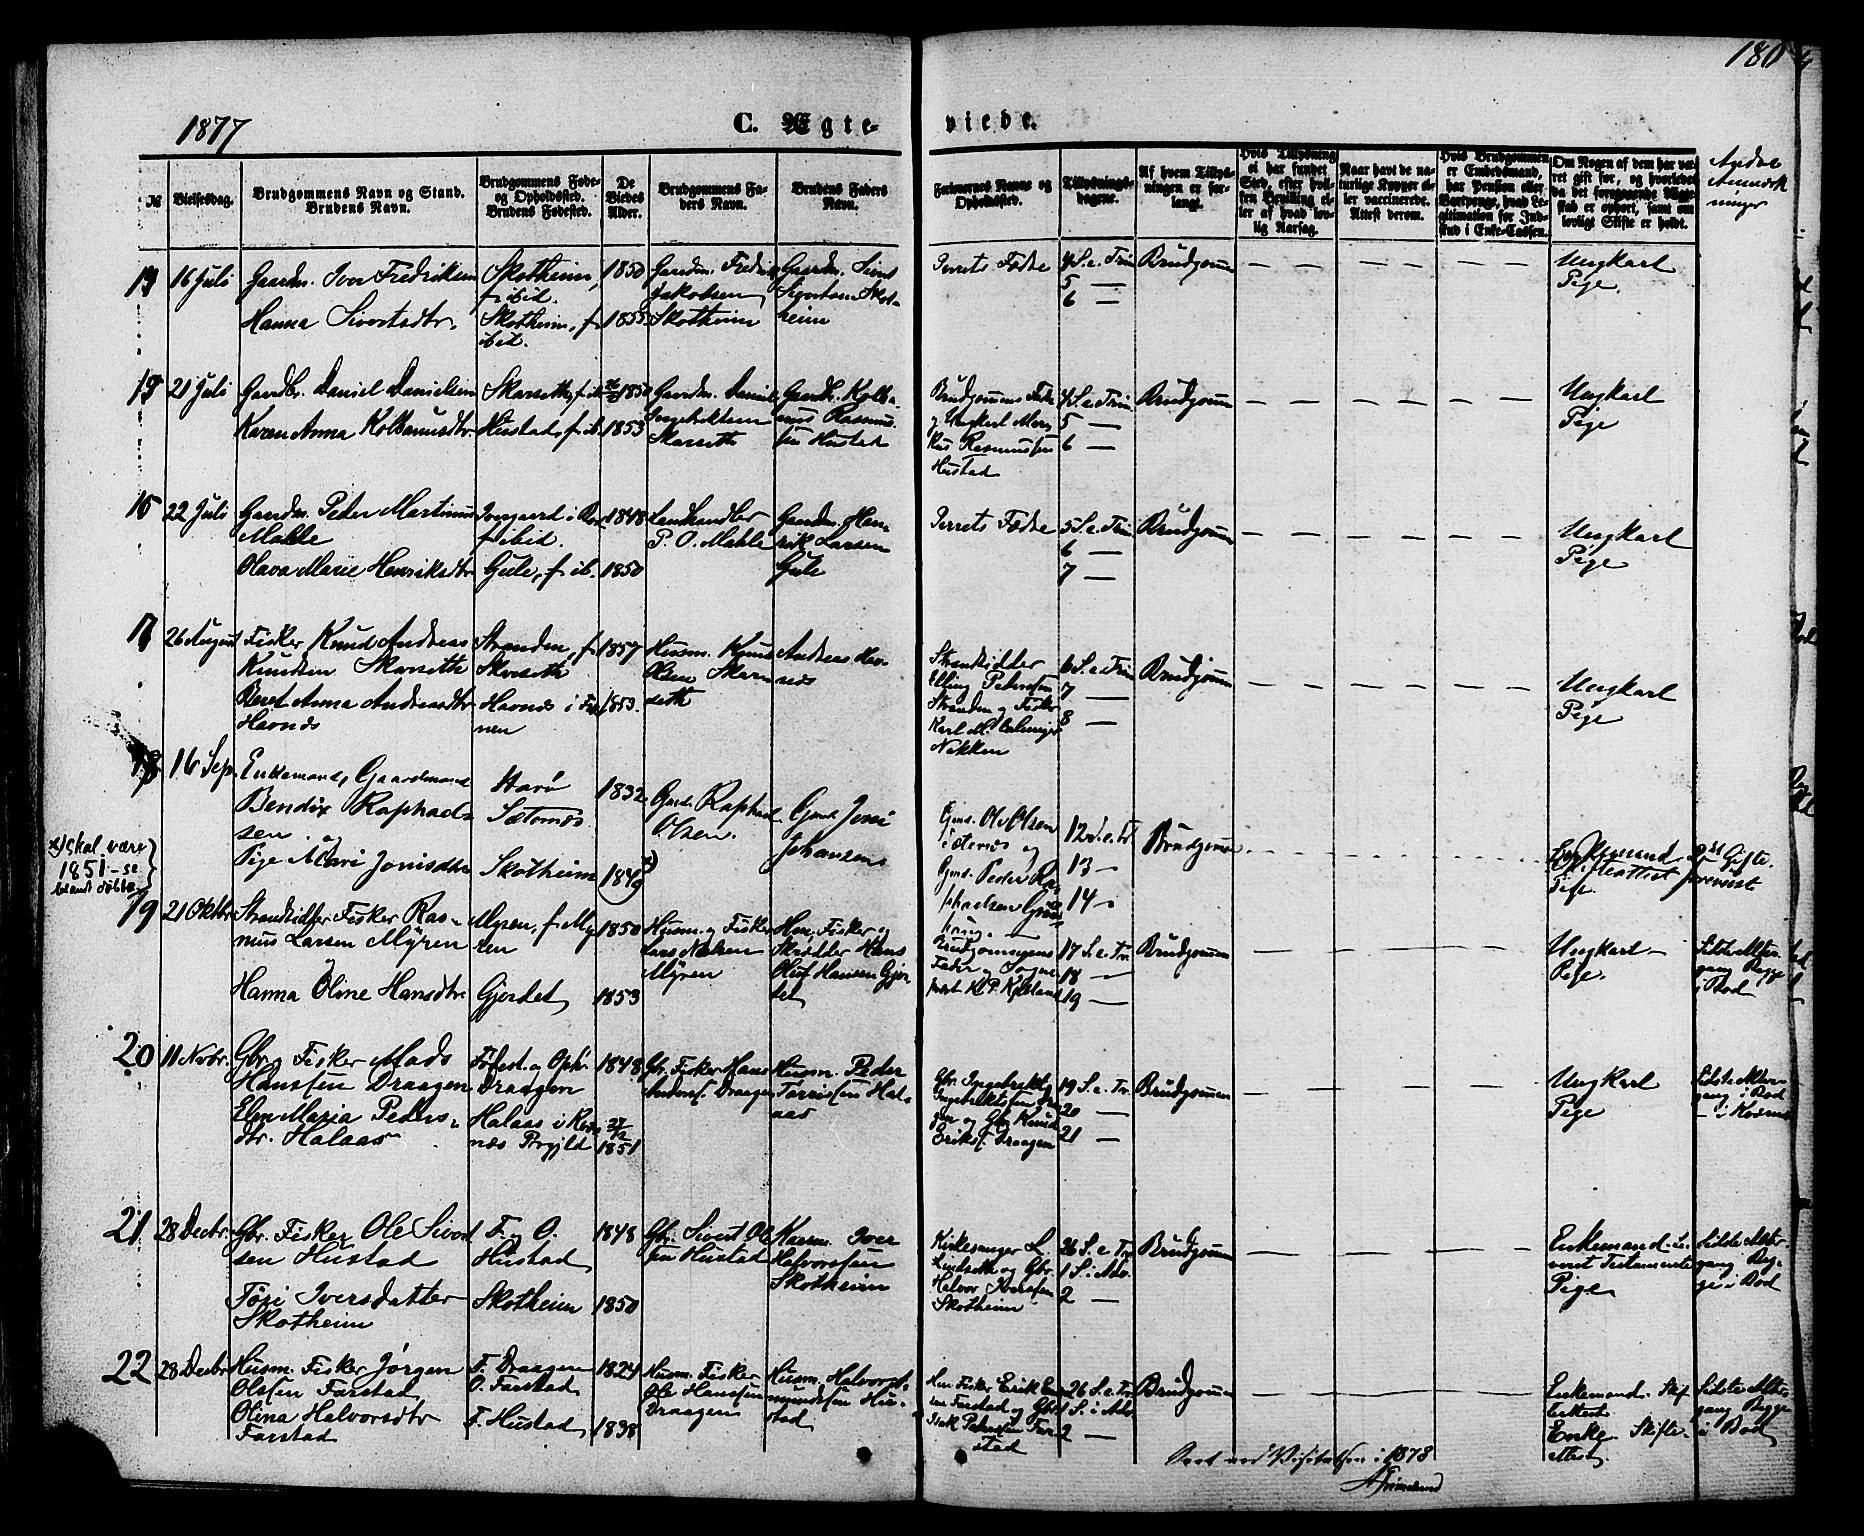 180
1877
C. Ægte-
viede.
№
Vielsesdag.
Brudgommens Navn og Stand.
Brudens Navn.
Brudgommens Føde-
og Opholdssted.
Brudens Fødested.
De
Viedes
Alder.
Brudgommens Fa-
ders Navn.
Brudens Faders
Navn.
Forlovernes Navne og
Opholdssted.
Tillysnings-
dagene.
Af hvem Tillys-
ningen er for-
langt.
Hvis Tillysning
ei har fundet
Sted, efter hvil-
ken Bevilling el-
ler af hvad lov-
lig Aarsag.
Naar havt de na-
turlige Kopper el-
ler vaccinerede.
Attest derom.
Hvis Brudgommen
er Embedsmand,
har Pension eller
Vartpenge, hvad Le-
gitimation for Ind-
skud i Enke-Cassen.
Om Nogen af dem har væ-
ret gift før, og hvorledes
da det foregaaende Ægte-
skab er ophørt, samt om
lovligt Skifte er holdt.
Andre
Anmærk
ninger
16 Juli
Gaardm. Iver Fredriksen
Hanna Sivertsdtr.
Skotheim,
f. ibid.
Skotheim, f.
ibid.
1850
1855
Gaardm. Fredrik
Jakobsen
Skotheim
Gaardm. Sivert
Sivertsen Skot-
heim
Parrets Fædre
4 S. e. Trin
5 —
6 —
Brudgom
Ungkarl
Pige.
21 Juli
Gaardbr. Daniel Danielsen
Karen Anna Kolbanusdtr.
Skarseth, f. ib.
Hustad, f. ib.
1850
1853
Gaardm. Daniel
Ingebriktsen
Skarseth
Gaardb. Kolba-
nus Rasmus-
sen Hustad
Brudgommens Fader
og Ungkarl Mar-
kus Rasmussen
Hustad
4 S. e. Trin
5 —
6 —
Brudgom
Ungkarl
Pige
22 Juli
Gaardm. Peder Martinus
Malle
Olava Marie Henriksdtr
f. ibid.
Gule, f. ib.
1848
1850
Landhandler
P. O. Mahle
Gaardm. Hen-
rik Larsen
Gule
Parrets Fædre
5 S. e. Trin
6 —
7 —
Brudgom
Ungkarl
Pige
26 August
Fisker Knud Andreas
Knudsen Skarseth
Beret Anna Andreasdtr
Havnæs
Stranden, f.
Skarseth
Havnæs i Fræ-
nen
1857
1853.
Husm. Knud
Olsen Skar-
seth
Andreas Hav-
næs
Strandsidder
Elling Petersen
Stranden og Fisker
Karl M.
Nakken
6 S. e. Trin
7 —
8 —
Brudgom
Ungkarl
Pige
16 Sep.
Enkemand, Gaardmand
Bendix Raphael-
sen. og
Pige Mari Jonisdtr
Harø
Sæternæs
Skotheim
1832.
1840
x) skal være
1851 - se
blandt døbte
Gmd. Raphael
Olsen.
Gmd. Joni
Johansen
Gmd. Ole Olsen
Sæternæs og
Gmd. Peder Ra-
phaelsen
12 S. e. Tr.
13 —
14 —
Brudgom
Enkemand
Pige.
19
21 Oktbr
Strandsidder Fisker Ras-
mus Larsen Myren
Hanna Oline Hansdtr.
Myren, f. My-
ren
Gjerdet,
1850
1853
Husm. og Fisker
Lars Nilsen
Myren
Hm. Fisker og
Skrædder Hans
Oluf Hansen Gjer-
det
Brudgommens
Fader og Sogne-
præst Kl. P. Kjelland
17 S. e. Tr.
18 —
19 —
Brudgommen
Ungkarl
Pige.
Sidste Alter-
gang Begge
i Bod
20
11 Novbr.
Gbr. og Fisker Mads
Hanssen Draagen
Elen Maria Peders-
dtr. Halaas
Fødest. og Oph.
Draagen
Halaas i Kor-
næs Prgjld
1848.
27/12
1851
Gbr. Fisker Hans
Anderss. Draagen
Husm. Peder
Tørrissen Hal-
aas
Gbr. Ingebrikt
Ingebriktssen Draa-
gen og Gbr Knud
Erikss. Draagen
19 S. e. Tr.
20 —
21 —
Brudgommen
Ungkarl
Pige
Sidste Alter-
gang i Bod
21
28 Decbr.
Gbr. Fisker Ole Sivert
sen Hustad
Tøri Iversdatter
Skotheim
F. og O.
Hustad
Skotheim
1848
1850
Gbr. Sivert Ol-
sen Hustad
Kaarm. Iver
Halvorssen
Skotheim
Kirkesanger L.
Lindseth og Gbr.
Halvor Iverssen
Skotheim
26 S. e. Tr.
1 S. i Adv.
2 —
Brudgommen
Enkemand.
Pige
Sidste Alter-
gang Beg-
ge i Bod
22
28 Decbr
Husm. Fisker Jørgen
Olssen Farstad
Olina Halvorsdtr
Farstad
F. Draagen
O. Farstad
F. Hustad
1824
1838
Husm. Fisker
Ole Hanssen
Draagen
Husm. Halvor
mundssen Hu-
stad
Hm. Fisker Erik
sen Farstad og Gbr.
Isak Pederssen Far-
stad
26 S. e. Tr.
1 S. i Adv.
2 —
Brudgommen
Enkemand. Skif-
teattest
Enke. Skifte-
attest
Sidste Alter-
gang Begge
i Bod
Seet ved Visitatsen i 1878